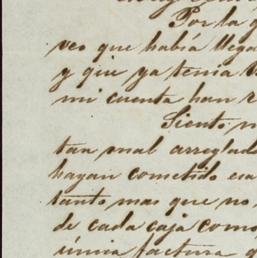 Por la
veo que había llega
y que ya tenia
mi cuenta han
Siento
tan mal arreglad
hayan cometido
tanto mas que no
de cada caja como
única factura